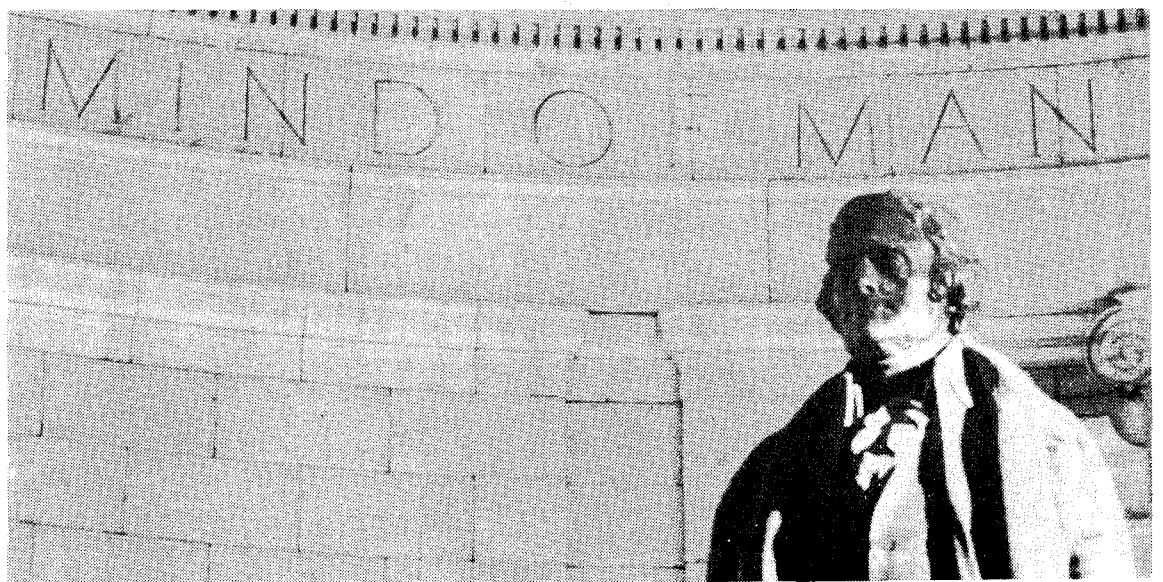 MIND OF MAN